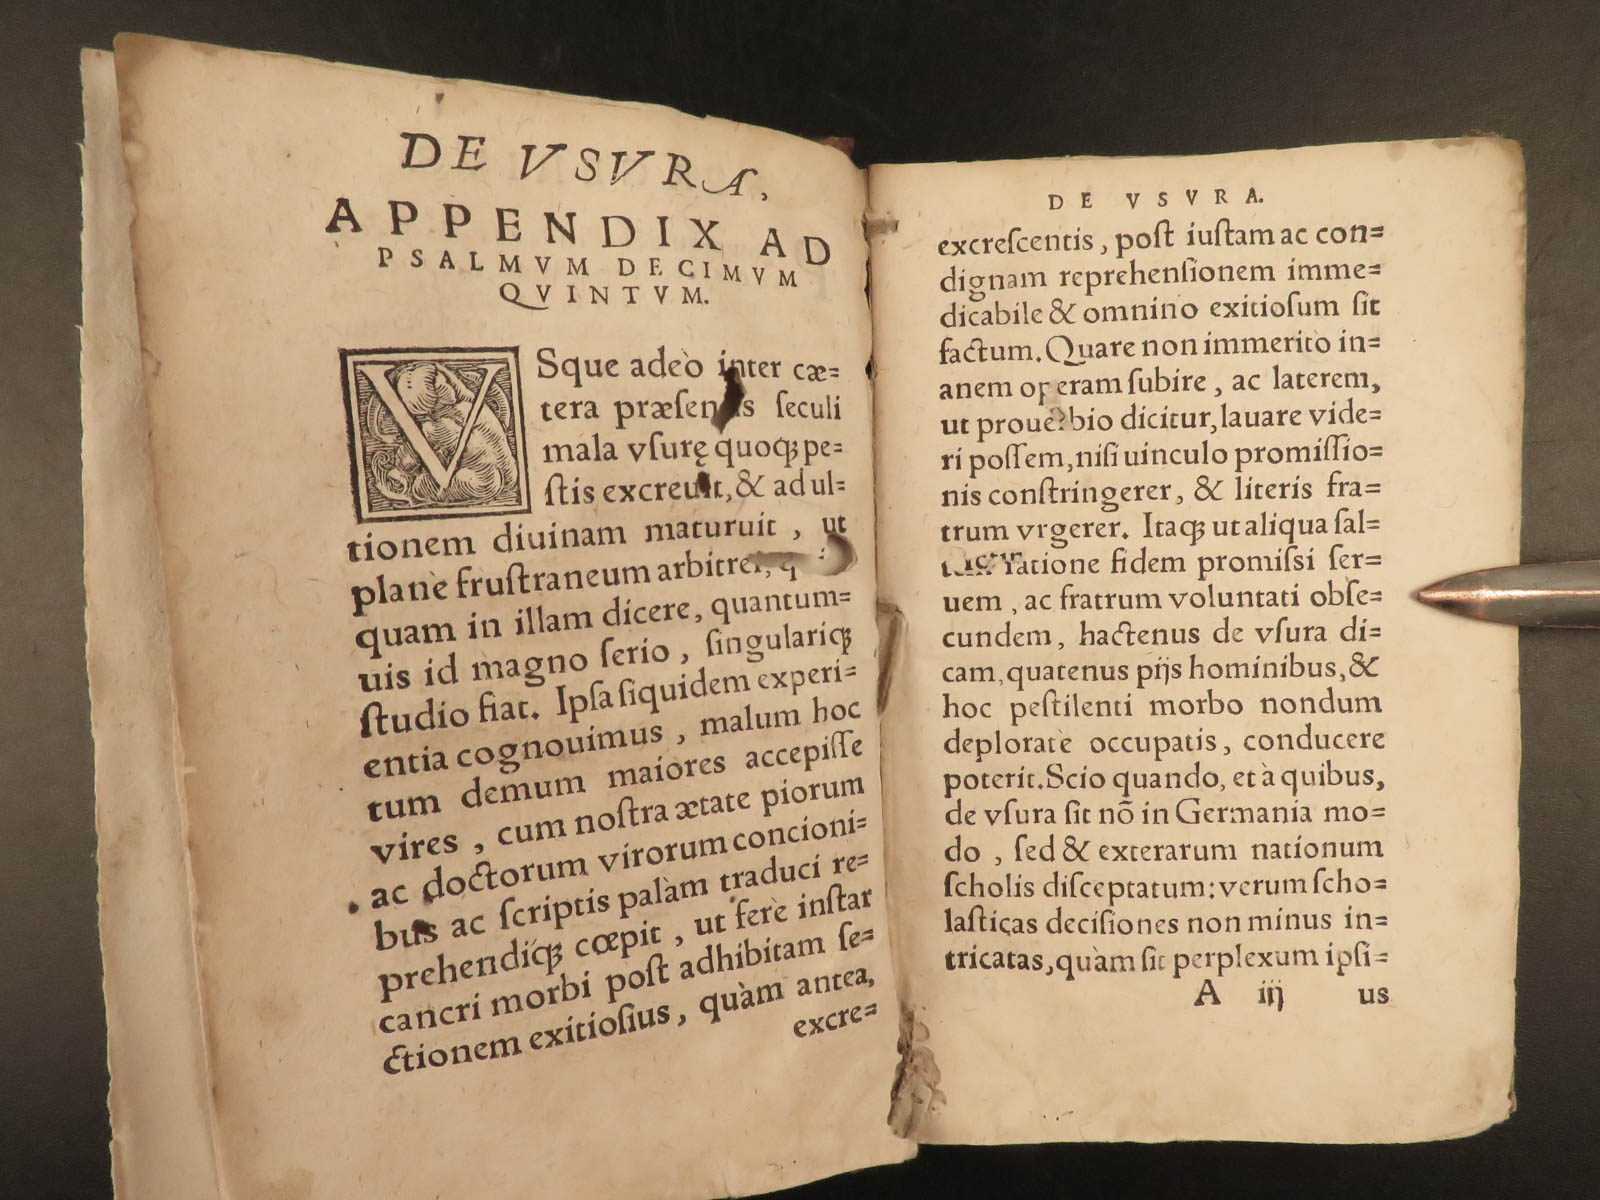 DE VSVRA,
APPENDIX AD
PSALMVM DECIMVM
QVINTVM.
VSque adeò inter cæ=
tera præsentis seculi
mala vsurę quoqꝫ pe=
stis excreuit, & ad ul=
tionem diuinam maturuit, ut
planè frustraneum arbitrer,
quam in illam dicere, quantum=
uis id magno serio, singulariqꝫ
studio fiat. Ipsa siquidem experi=
entia cognouimus, malum hoc
tum demum maiores accepisse
vires, cum nostra ætate piorum
ac doctorum virorum concioni=
bus ac scriptis palàm traduci re=
prehendiqꝫ cœpit, ut ferè instar
cancri morbi post adhibitam se=
ctionem exitiosius, quàm antea,
excre=
DE VSVRA.
excrescentis, post iustam ac con=
dignam reprehensionem imme=
dicabile & omnino exitiosum sit
factum. Quare non immeritò in=
anem operam subire, ac laterem,
ut prouerbio dicitur, lauare vide=
ri possem, nisi uinculo promissio=
nis constringerer, & literis fra=
trum vrgerer. Itaqꝫ ut aliqua sal=
ratione fidem promissi ser=
uem, ac fratrum voluntati obse=
cundem, hactenus de vsura di=
cam, quatenus pijs hominibus, &
hoc pestilenti morbo nondum
deploratè occupatis, conducere
poterit. Scio quando, et à quibus,
de vsura sit nõ in Germania mo=
do, sed & exterarum nationum
scholis disceptatum: verum scho=
lasticas decisiones non minus in=
tricatas, quàm sit perplexum ipsi=
A iij us